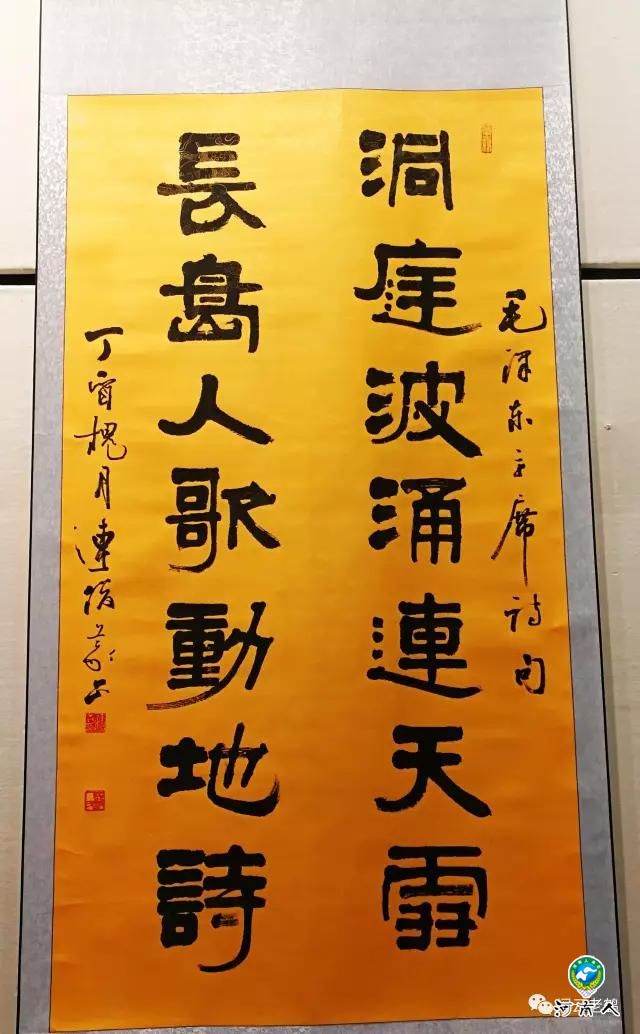 毛泽东主席诗句
洞庭波涌連天雪
長島人歌動地詩
丁酉槐月連
河南人